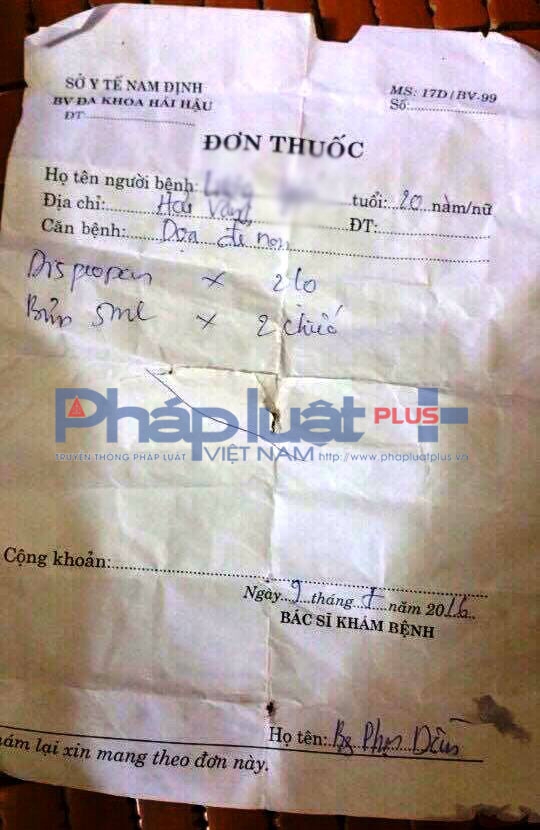 SỞ Y TẾ NAM ĐỊNH
BV ĐA KHOA HẢI HẬU
ĐT
MS: 17D/BV-99
Số:
ĐƠN THUỐC
Họ tên người bệnh: tuổi: 20 nam/nữ
Địa chỉ: Hải ĐT:
Căn bệnh: Dọa đẻ non
x 2 lọ
Bơm 5ml x 2 chiếc
Pháp luật PLUS+
TRUYỀN THÔNG PHÁP LUẬT VIỆT NAM http://www.phapluatplus.vn
Cộng khoản:
Ngày 9 tháng năm 2016
BÁC SĨ KHÁM BỆNH
Họ tên: Bs Phạm
khám lại xin mang theo đơn này.